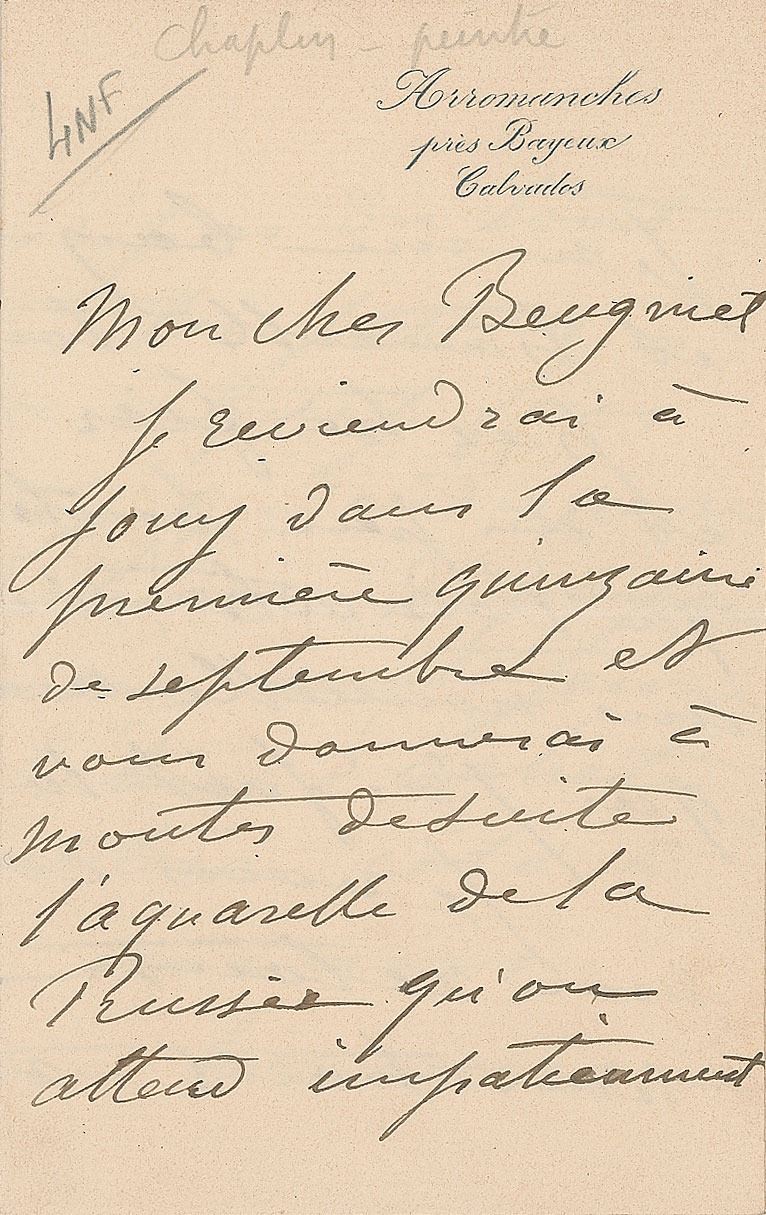 chaplin - peintre
4NF
Arromanches
près Bayeux
Calvados
Mon cher Beugniet
Je reviendrai à
Jouy dans la
première quinzaine
de septembre et
vous donnerai à
monter desuite
l'aquarelle de la
Russie qu'on
attend impatiemment